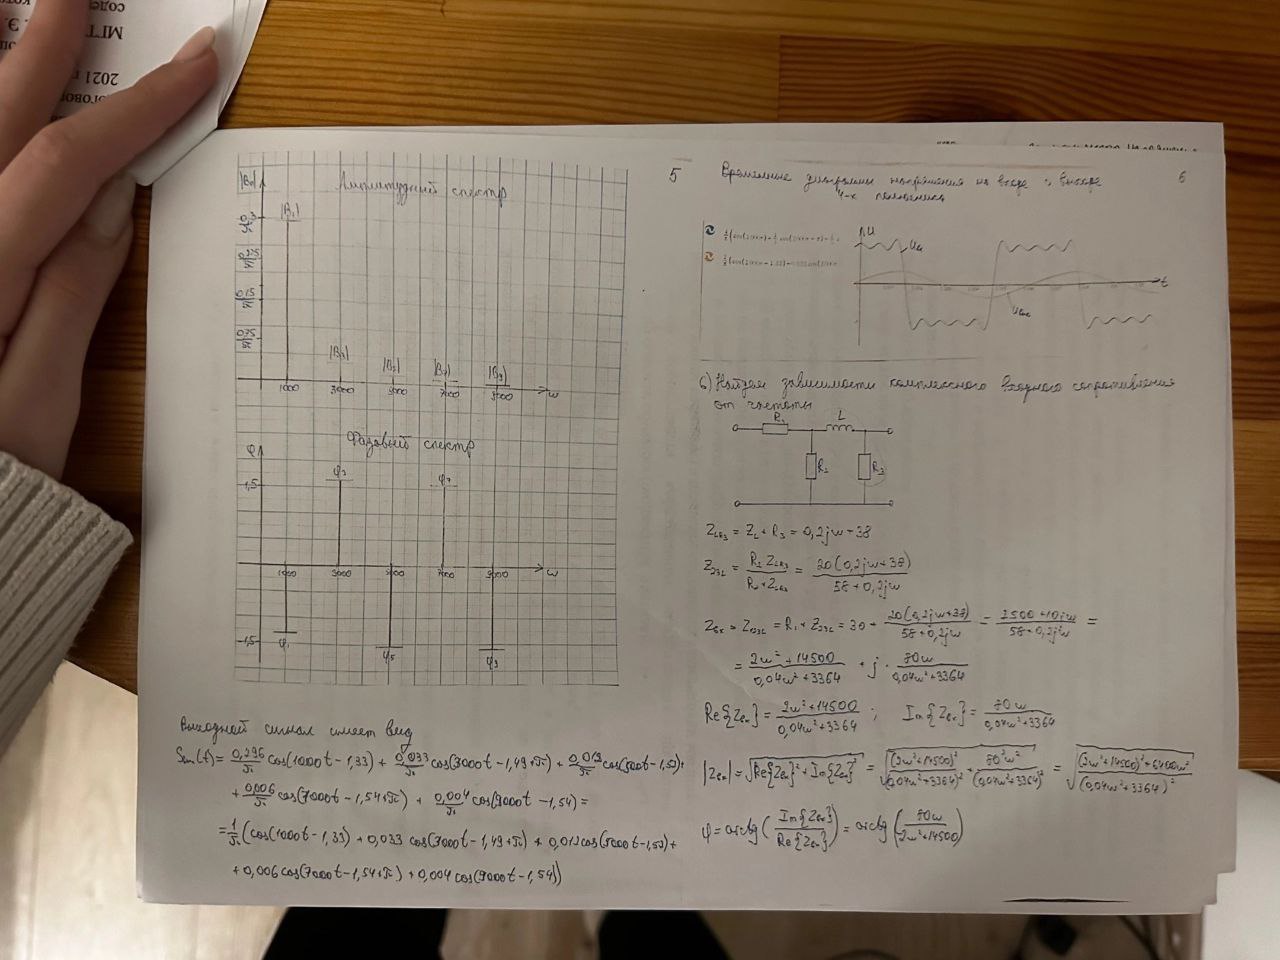 МГТ
2021 г
5
Амплитудный спектр
|Bn|
|B1|
0,3/π
0,225/π
0,15/π
0,75/π
|B3|
|B5|
|B7|
|B9|
1000 3000 5000 7000 9000 ω
Фазовый спектр
φ
φ3
φ7
1,5
1000 3000 5000 7000 9000 ω
-1,5
φ1
φ5
φ9
Выходной сигнал имеет вид
Sвых(t)= 0,296/π cos(1000t-1,33) + 0,033/π cos(3000t-1,49+π) + 0,012/π cos(5000t-1,53)+
+ 0,006/π cos(7000t-1,54+π) + 0,004/π cos(9000t-1,54)=
=1/π (cos(1000t-1,33) + 0,033 cos(3000t-1,49+π) + 0,012cos(5000t-1,53)+
+0,006cos(7000t-1,54+π)+0,004cos(9000t-1,54))
6
Временные диаграммы напряжения на входе и выходе
4-х полюсника
U
Uвх
t
Uвых
6) Найдем зависимости комплексного входного сопротивления
от частоты
R1 L
R2 R3
ZLR3 = ZL + R3 = 0,2jω+38
Z23L = R2 ZLR3 / R2+ZLR3 = 20(0,2jω+38) / 58+0,2jω
Zвх = Z123L = R1 + Z23L = 30 + 20(0,2jω+38) / 58+0,2jω = 2500+10jω / 58+0,2jω =
= 2ω²+14500 / 0,04ω²+3364 + j · 80ω / 0,04ω²+3364
Re{Zвх} = 2ω²+14500 / 0,04ω²+3364 ; Im{Zвх} = 80ω / 0,04ω²+3364
|Zвх| = √(Re{Zвх}²+Im{Zвх}²) = √((2ω²+14500)² / (0,04ω²+3364)² + 80²ω² / (0,04ω²+3364)²) = √((2ω²+14500)²+6400ω² / (0,04ω²+3364)²)
φ=arctg(Im{Zвх} / Re{Zвх}) = arctg(80ω / 2ω²+14500)